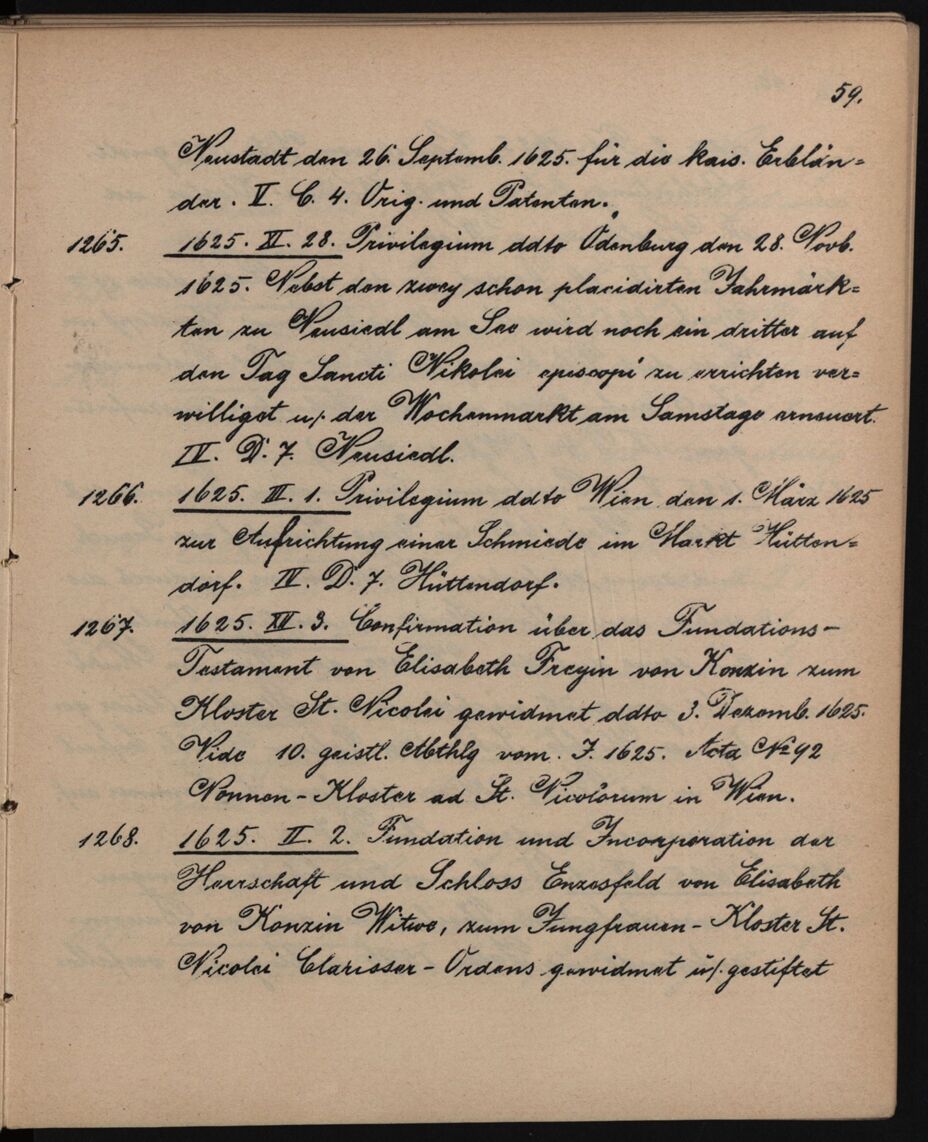 59.
Neustadt den 26. Septemb. 1625. für die kais. Erblän=
der. V. C. 4. Orig. und Patenten.
1265. 1625. XI. 28. Privilegium ddto Ödenburg den 28. Novb.
1625. Nebst den zwey schon placidirten Jahrmärk=
ten zu Neusiedl am See wird noch ein dritter auf
den Tag Sancti Nikolei episcopi zu errichten ver=
williget u/. der Wochenmarkt am Samstage erneuert.
IV. D. 7. Neusiedl.
1266. 1625. III. 1. Privilegium ddto Wien den 1. März 1625
zur Aufrichtung einer Schmiede im Markt Hütten=
dorf. IV. D. 7. Hüttendorf.
1267. 1625. XII. 3. Confirmation über das Fundations-
Testament von Elisabeth Freyin von Konzin zum
Kloster St. Nicolei gewidmet ddto 3. Dezemb. 1625.
Vide 10. geistl. Abthlg vom. J. 1625. Acta No 92
Nonnen-Kloster ad St. Nicolorum in Wien.
1268. 1625. II. 2. Fundation und Incorporation der
Herrschaft und Schloss Enzesfeld von Elisabeth
von Konzin Witwe, zum Jungfrauen-Kloster St.
Nicolei Clarisser-Ordens gewidmet u/. gestiftet